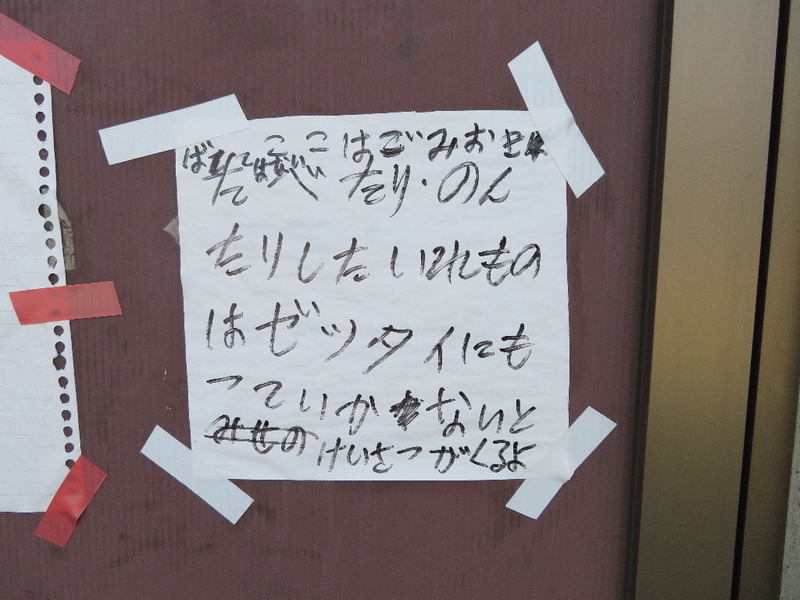 ここはごみおき
ば たり・のん
たりしたいれもの
はゼッタイにも
っていかないと
みせの けいさつがくるよ